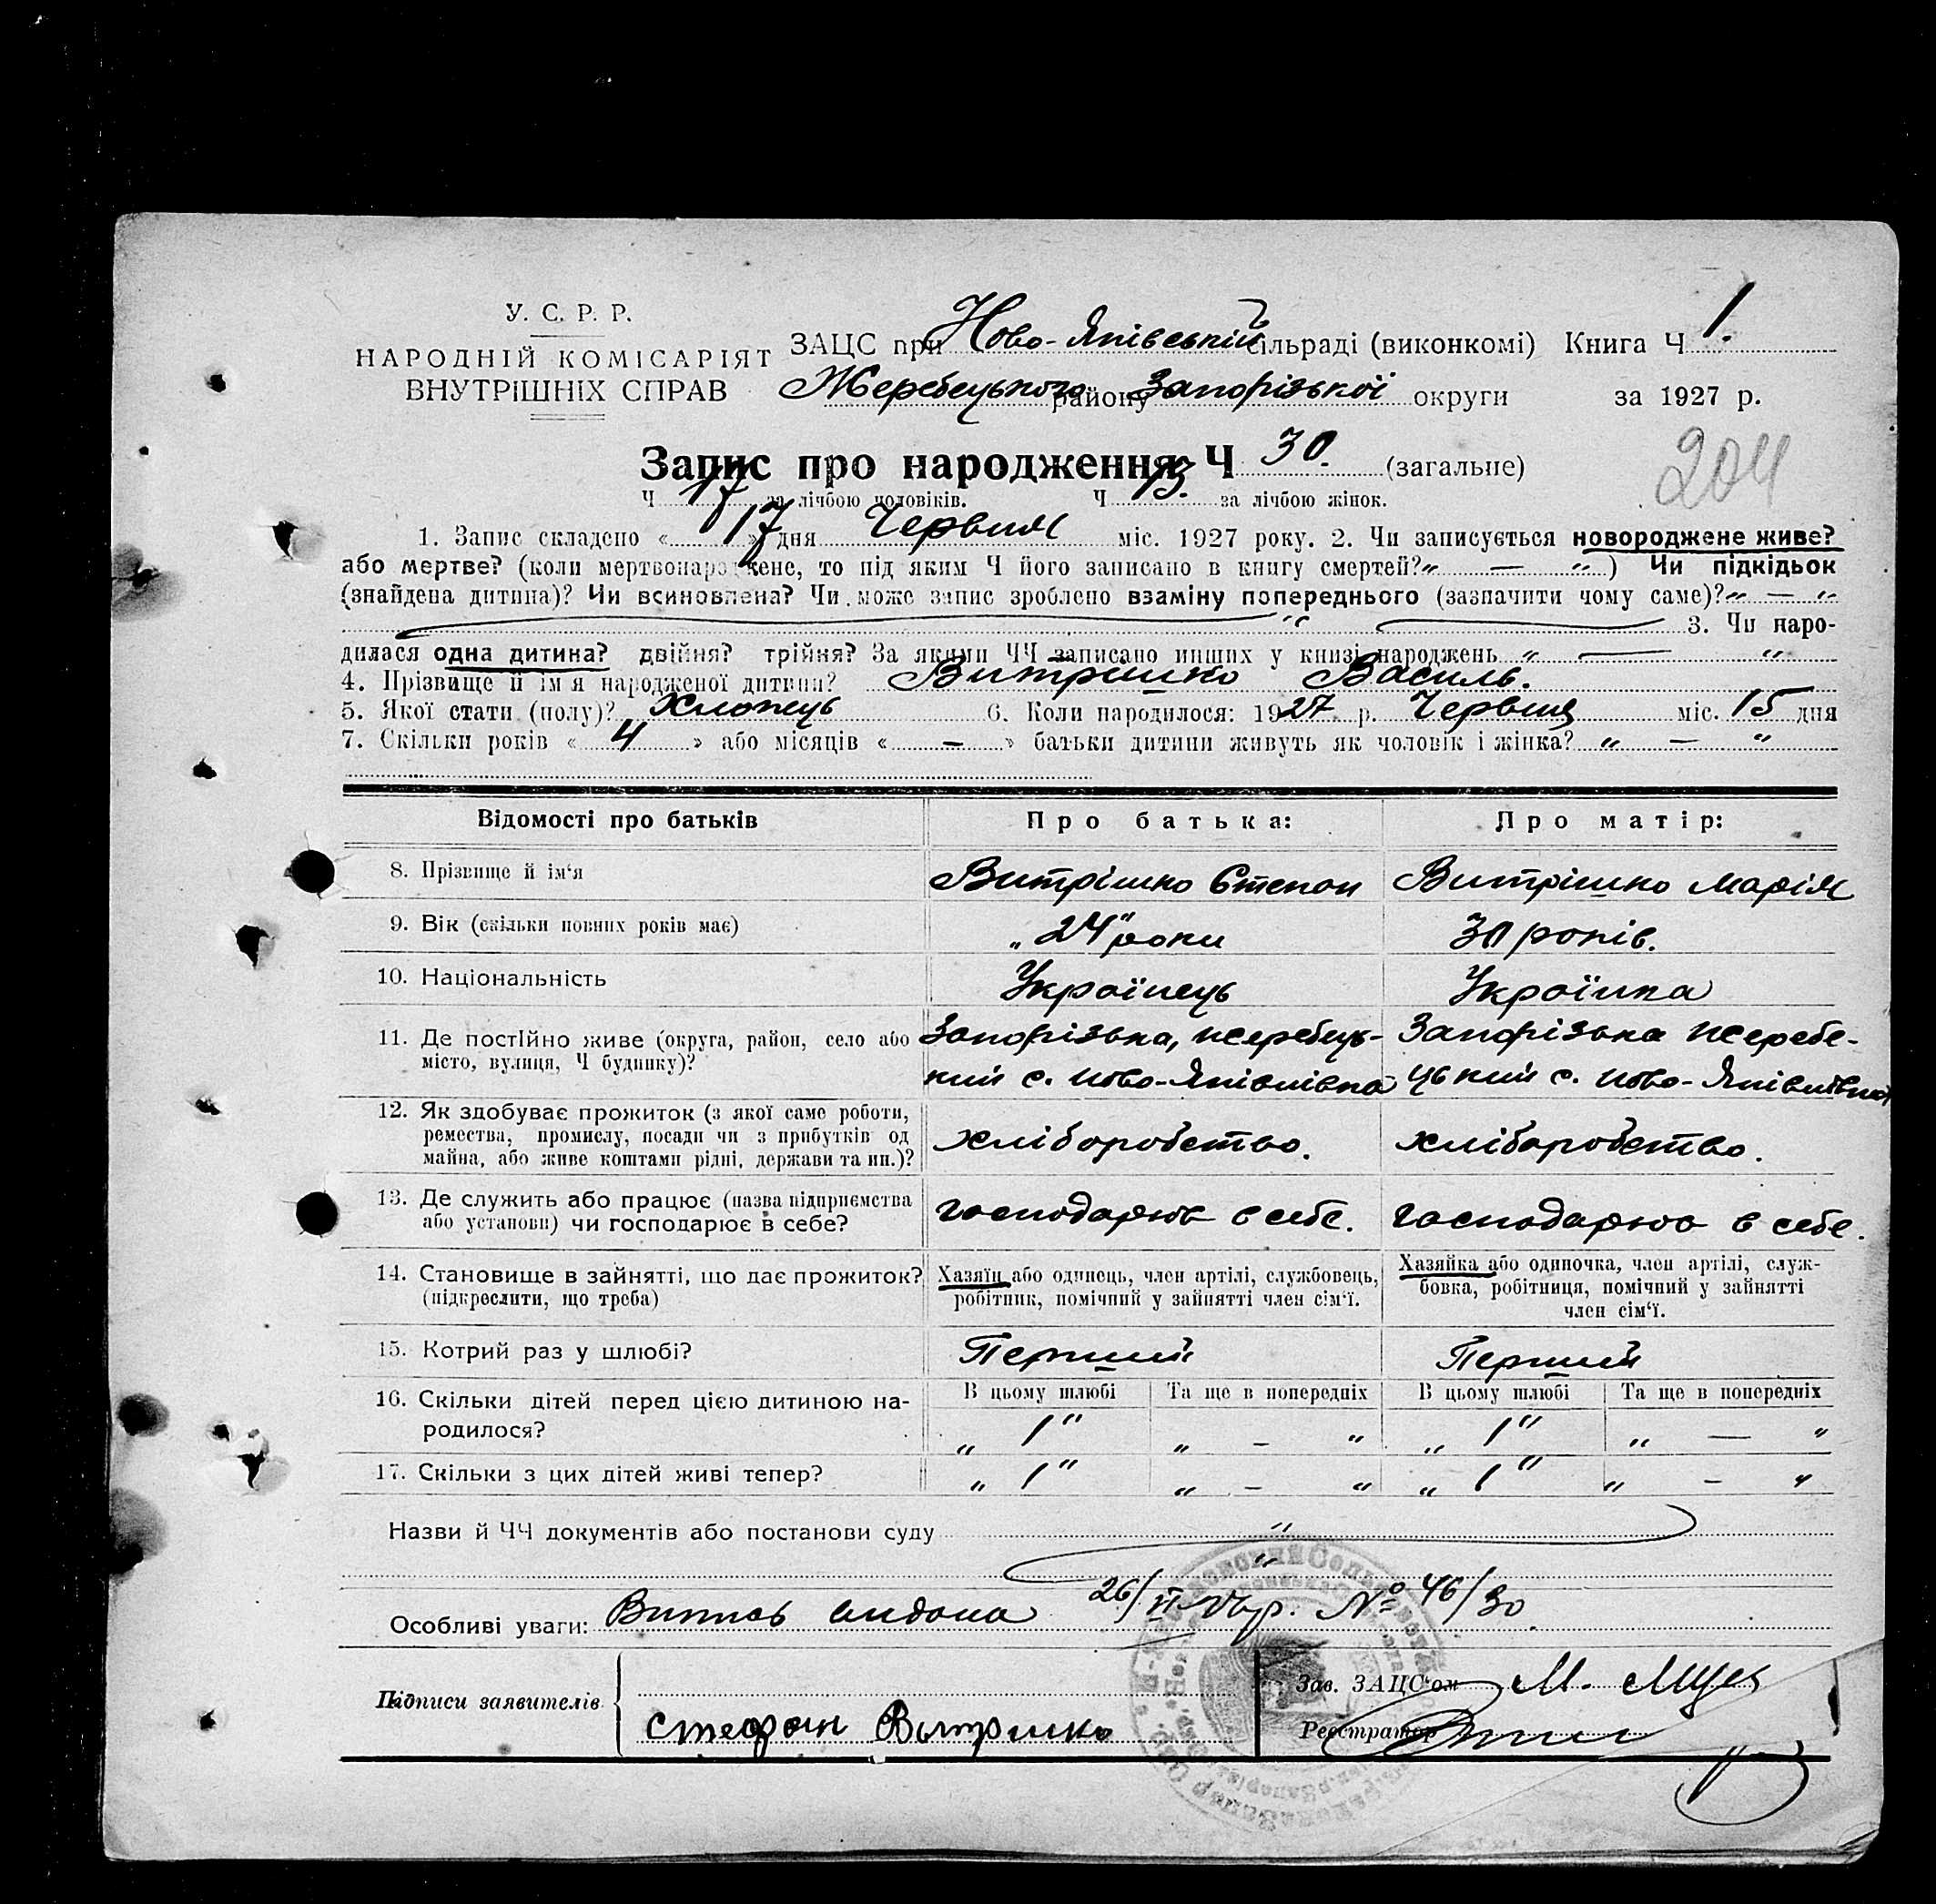 У. С. Р. Р.
НАРОДНІЙ КОМІСАРІЯТ
ВНУТРІШНІХ СПРАВ
ЗАЦС при Ново-Яківській сільраді (виконкомі) Книга Ч 1.
Жеребецького району Запорізької округи за 1927 р.
Запис про народження Ч 30. (загальне)
204
Ч 17 за лічбою чоловіків. Ч 13. за лічбою жінок.
1. Запис складено « 17 » дня Червня міс. 1927 року. 2. Чи записується новороджене живе?
або мертве? (коли мертвонароджене, то під яким Ч його записано в книгу смертей? „ — “) Чи підкідьок
(знайдена дитина)? Чи всиновлена? Чи може запис зроблено взаміну попереднього (зазначити чому саме)? „ — “
„ 3. Чи наро-
дилася одна дитина? двійня? трійня? За якими ЧЧ записано инших у книзі народжень „ — “
4. Прізвище й ім'я народженої дитини? Витрішко Василь.
5. Якої стати (полу)? Хлопець 6. Коли народилося: 1927 р. Червня міс. 15 дня
7. Скільки років « 4 » або місяців « — » батьки дитини живуть як чоловік і жінка? „ — “
Відомості про батьків Про батька: Про матір:
8. Прізвище й ім'я Витрішко Степан Витрішко Марія
9. Вік (скільки повних років має) „ 24 “ роки 30 років.
10. Національність Українець Українка
11. Де постійно живе (округа, район, село або Запорізька, жеребець- Запорізька жеребе-
місто, вулиця, Ч будинку)? кий с. Ново-Яківлівка цький с. Ново-Яківлівка
12. Як здобуває прожиток (з якої саме роботи,
ремества, промислу, посади чи з прибутків од хліборобство. хліборобство.
майна, або живе коштами рідні, держави та ин.)?
13. Де служить або працює (назва підприємства господарює в себе. господарює в себе.
або установи) чи господарює в себе?
14. Становище в зайнятті, що дає прожиток? Хазяїн або одинець, член артілі, службовець, Хазяйка або одиночка, член артілі, служ-
(підкреслити, що треба) робітник, помічний у зайнятті член сім'ї. бовка, робітниця, помічний у зайнятті
член сім'ї.
15. Котрий раз у шлюбі? Перший Перший
В цьому шлюбі Та ще в попередніх В цьому шлюбі Та ще в попередніх
16. Скільки дітей перед цією дитиною на-
родилося? „ 1 “ „ — “ „ 1 “ „ — “
17. Скільки з цих дітей живі тепер? „ 1 “ „ — “ „ 1 “ „ — “
Назви й ЧЧ документів або постанови суду „
„
Особливі уваги: Випись видана 26/VI Кр. № 46/30.
Підписи заявителів Зав. ЗАЦС'ом М.
Стефан Витришко Реєстратор